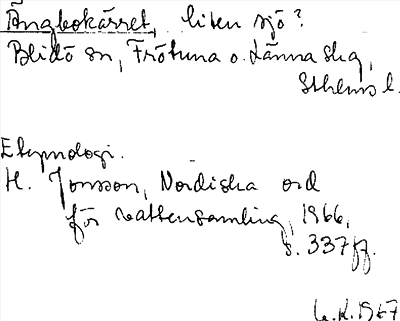 Ängbokärret, liten sjö?
Blidö sn, Frötuna o. Länna skg,
Sthlms l.
Etymologi.
H. Jonsson, Nordiska ord
för vattensamling, 1966,
s. 337 ff.
1967